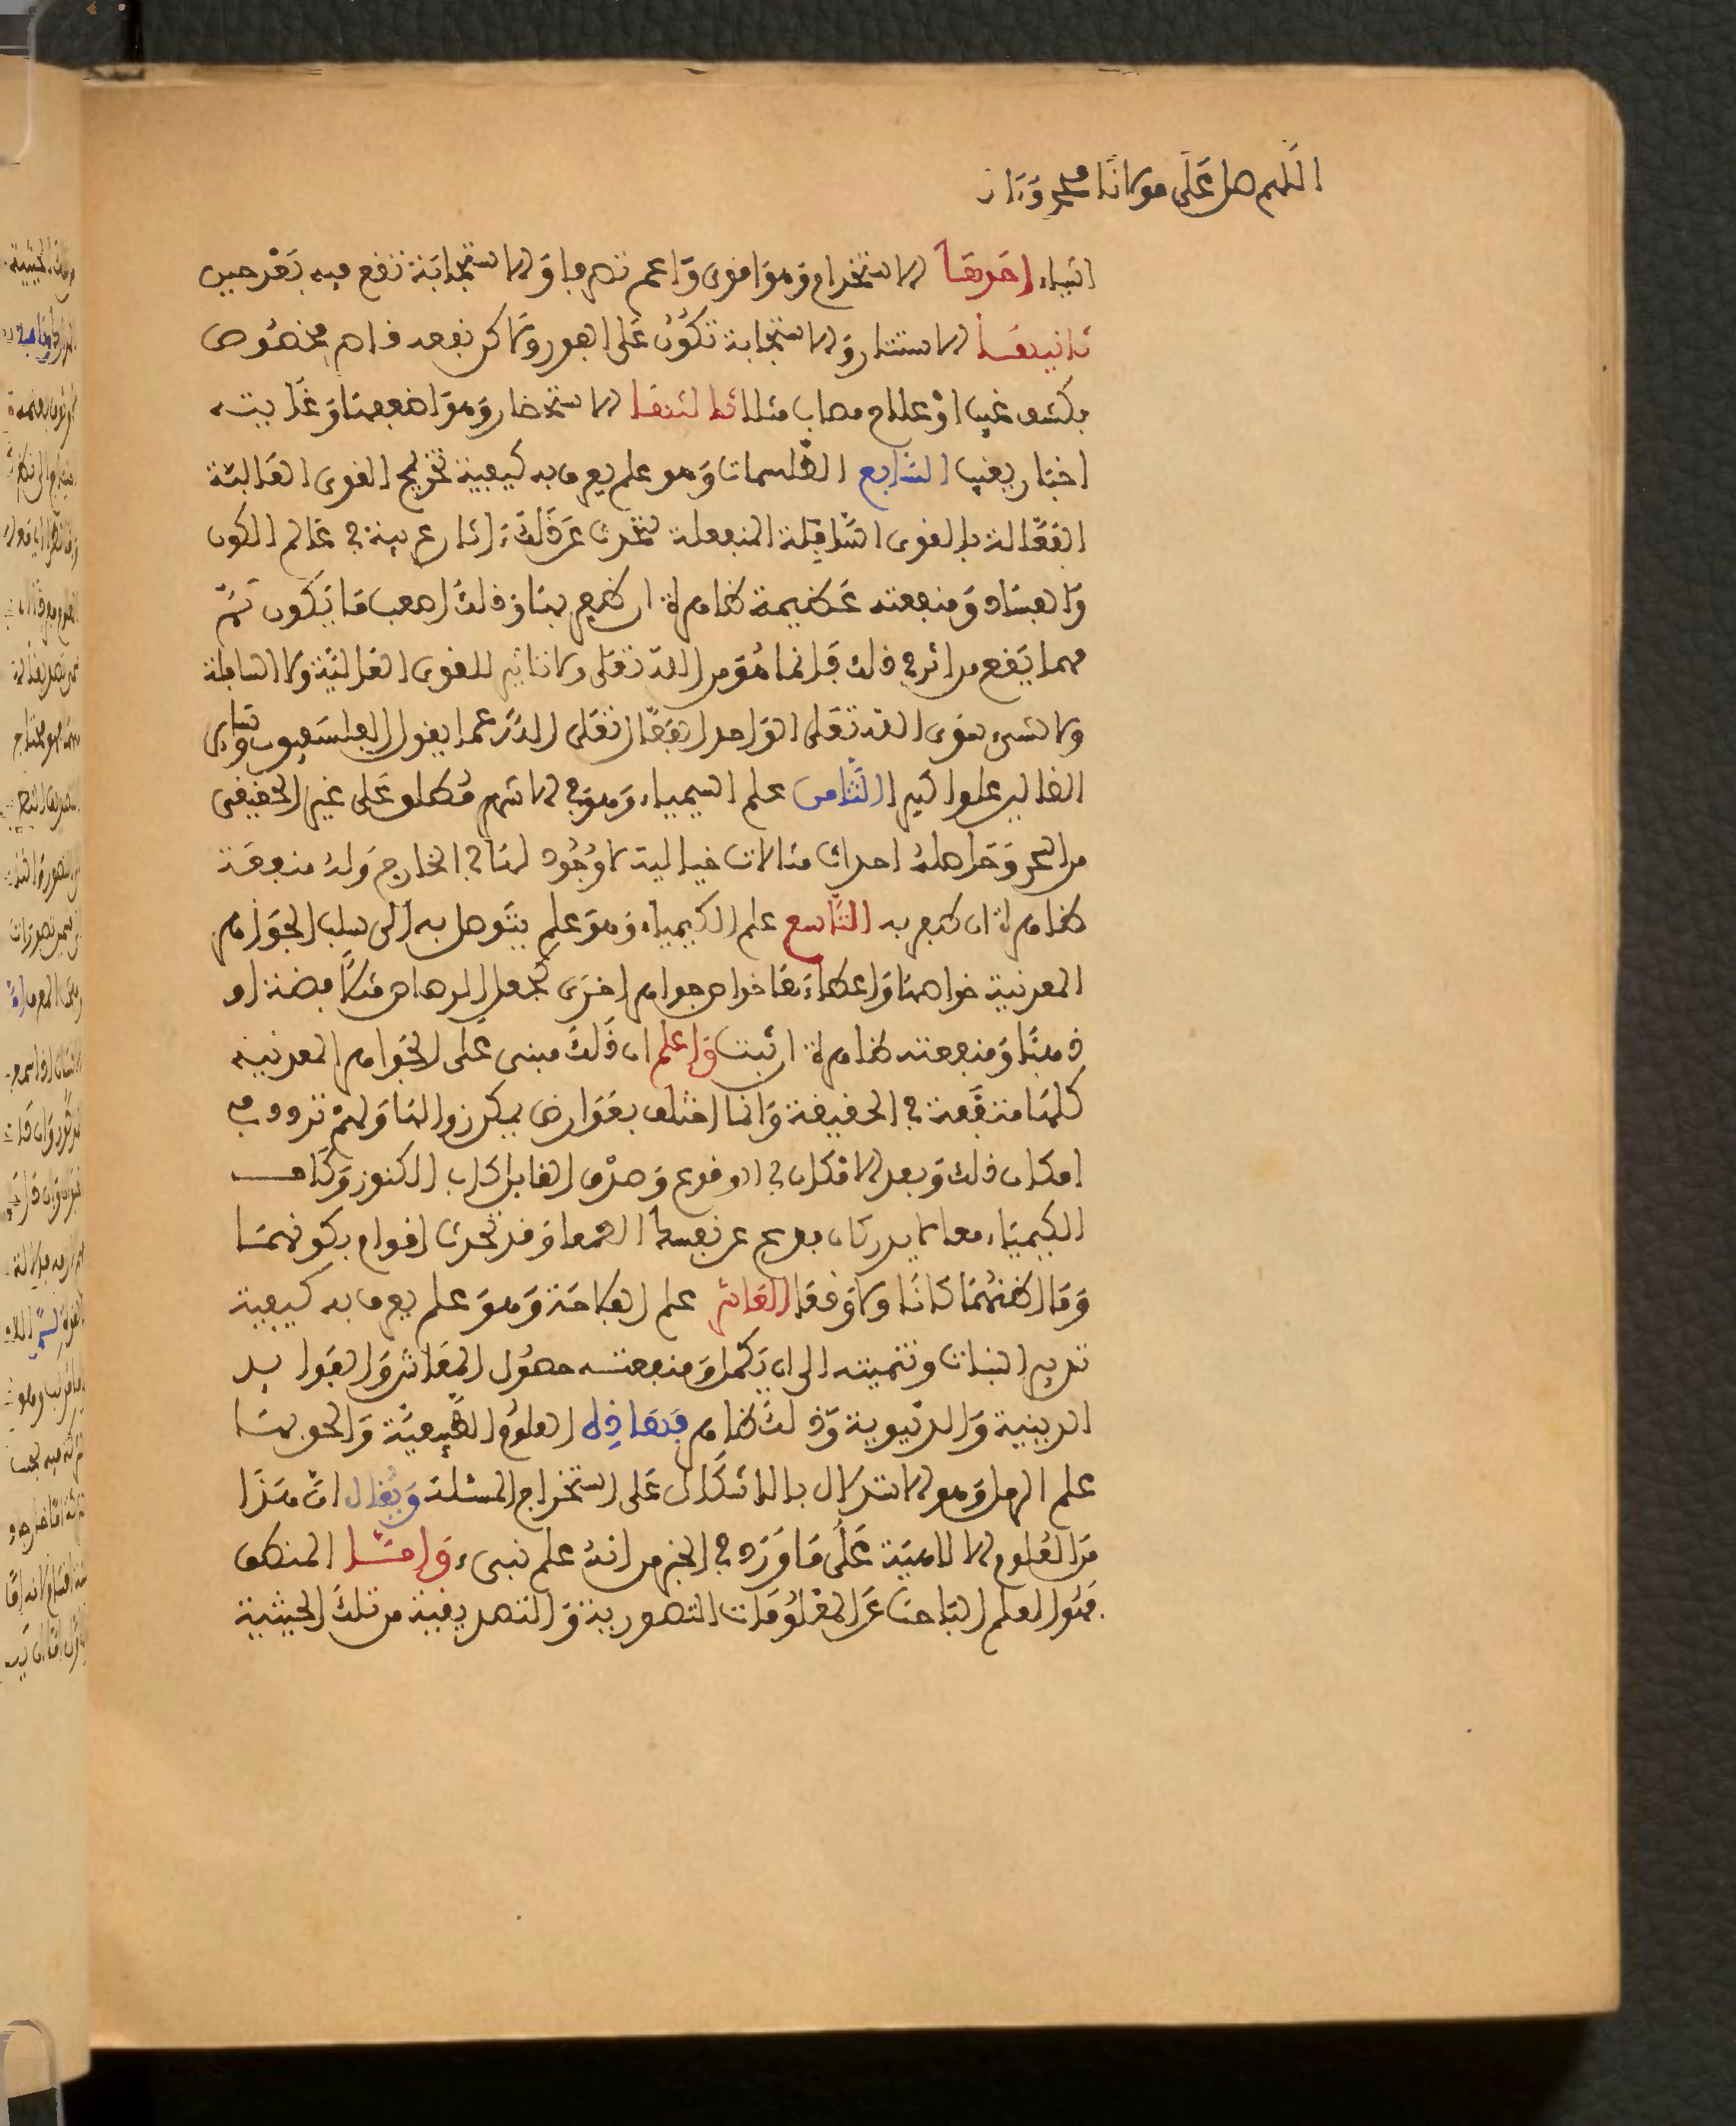 اللهم صل على مولانا محمد وءا
اشياء احدها الاستخدام وهو اقوى واعم تصرفا والاستجابة تقع فيه بعد حين
ثانيها الاستنزال والاستجابة تكون على الفور ولاكن بقصد خاص مخصوص
بكشف غيب او علاج مصاب مثلا ثالثها الاستحضار وهو اضعفها وغايته
اخبار بغيب السابع الطلسمات وهو علم يعرف به كيفية تمزيج القوى العالية
الفعالة بالقوى السافلة المنفعلة لتحدث عن ذلك اثار غريبة في عالم الكون
والفساد ومنفعته عظيمة ظاهرة ان ظفر بها وذلك اصعب ما يكون ثم
مهما يقع من اثر في ذلك فانما هو من الله تعلى ولا تاثير للقوى العالية ولا السافلة
ولا لشيء سوى الله تعلى الواحد الفعال تعلى الله عما يقول الفلسفيون وسائر
الظالمين علوا كبيرا الثامن علم السيمياء وهو في الاشهر مطلق على غير الحقيقي
من السحر وحاصله احداث مثالات خيالية لا وجود لها في الخارج وله منفعة
ظاهرة ان ظفر به التاسع علم الكيمياء وهو علم يتوصل به الى سلب الجواهر
المعدنية خواصها واعطائها خواص جواهر اخرى كجعل الرصاص مثلا فضة او
ذهبا ومنفعته ظاهرة ان ثبت واعلم ان ذلك مبني على ان الجواهر المعدنية
كلها متفقة في الحقيقة وانما اختلف بعوارض يمكن زوالها ولهم تردد في
امكان ذلك وبعد الامكان في الوقوع وصدق القائل كاف الكنوز وكاف
الكيمياء معا لا يدركان فدع عن نفسك الطمعا وقد تحدث اقوام بكونهما
وما اظنهما كانا ولا وقعا العاشر علم الفلاحة وهو علم يعرف به كيفية
تدبير النبات وتنميته الى ان يكمل ومنفعته حصول المعاش والفوايد
الدينية والدنيوية وذلك ظاهر فهاذه العلوم الطبيعية والحق بها
علم الرمل وهو الاستدلال بالاشكال على استخراج المسئلة ويقال ان هذا
من العلوم الالاهية على ما ورد في الخبر من انه علم نبيء واما المنطق
فهو العلم الباحث عن المعلومات التصورية والتصديقية من تلك الحيثية